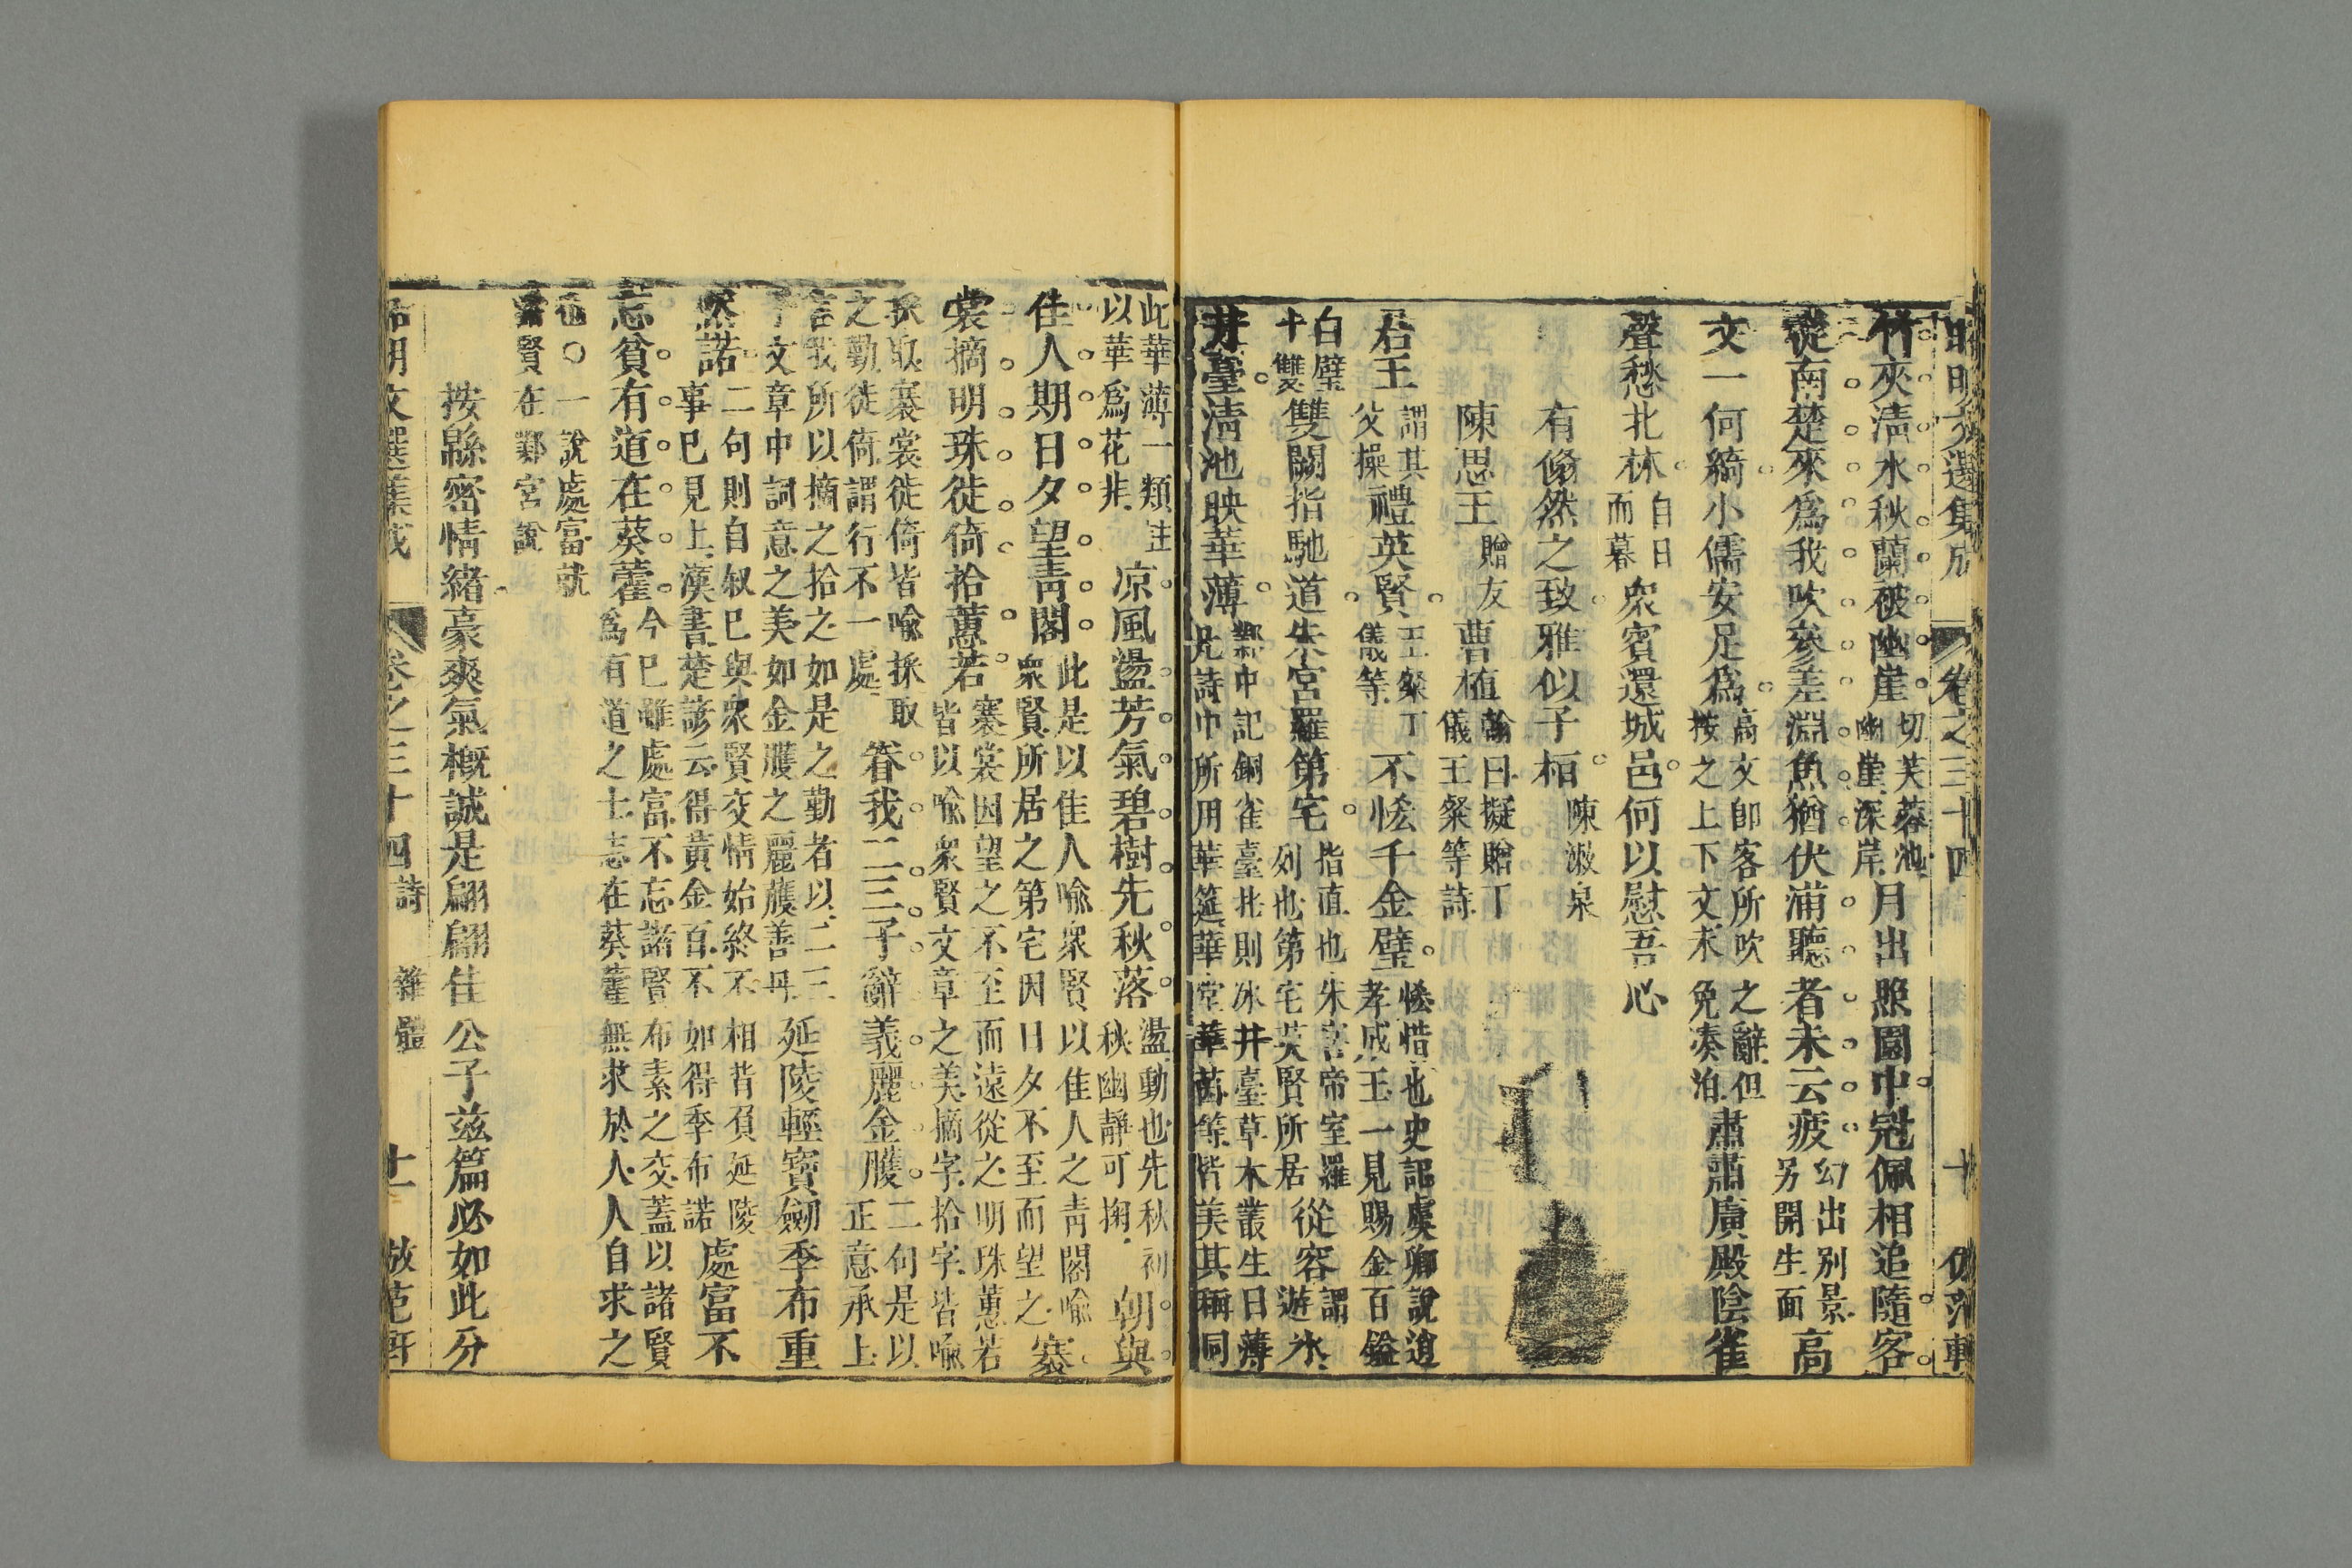 昭明文選集成 卷之三十四 十 倣范軒
竹夾清水秋蘭被幽崖 切芙蓉池幽崖深岸 月出照園中冠佩相追隨客
從南楚來為我吹參差淵魚猶伏浦聽者未云疲 幻出別景另開生面 高
文一何綺小儒安足為 高文卽客所吹之辭但按之上下文未免湊泊 肅肅廣殿陰雀
聲愁北林 自日而暮 衆賓還城邑何以慰吾心
有翛然之致雅似子桓 陳淑泉
陳思王 贈友 曹植 翰曰擬贈丁儀王粲等詩
君王 謂其父操 禮英賢 王粲丁儀等 不恡千金璧 恡惜也史記虞卿說趙孝成王一見賜金百鎰
白璧十雙 雙闕指馳道朱宮羅第宅 指直也朱宮帝室羅列也第宅英賢所居 從容 謂遊 氷
井臺清池映華薄 鄴中記銅雀臺北則冰井臺草木叢生曰薄凡詩中所用華筵華堂華茵等皆美其稱同
此華薄一類註以華為花非 凉風盪芳氣碧樹先秋落 盪動也先秋初秋幽靜可掬 朝與
佳人期日夕望青閣 此是以佳人喻衆賢以佳人之青閣喻衆賢所居之第宅因日夕不至而望之 褰
裳摘明珠徙倚拾蕙若 褰裳因望之不至而遠從之明珠蕙若皆以喻衆賢文章之美摘字拾字皆喻
採取褰裳徙倚皆喻採取之勤徙倚謂行不一處 眷我二三子辭義麗金雘 二句是以正意承上
言我所以摘之拾之如是之勤者以二三子文章中詞意之美如金雘之麗雘善丹 延陵輕寶劒季布重
然諾 二句則自叙已與衆賢交情始終不相背負延陵事已見上漢書楚諺云得黃金百不如得季布諾 處富不
忘貧有道在葵藿 今已雖處富不忘諸賢布素之交蓋以諸賢為有道之士志在葵藿無求於人人自求之
也○一說處富就當賢在鄴宮說
按緜密情緒豪爽氣概誠是翩翩佳公子兹篇必如此分
昭明文選集成 卷之三十四 詩 雜體 十一 倣范軒